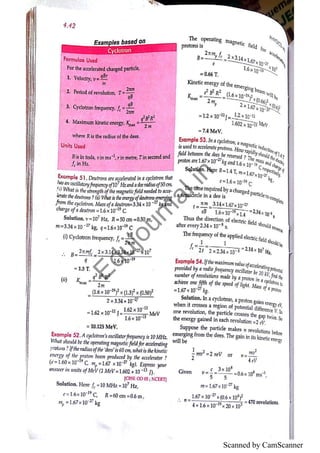 4.42
Examples based on
Cyclotron
Formulae Used
For the accelerated charged particle,
1. Velocity, v = qBr/m
2. Period of revolution, T = 2πm/qB
3. Cyclotron frequency, f_c = qB/2πm
4. Maximum kinetic energy, K_max = q²B²R²/2m
where R is the radius of the dees.
Units Used
B is in tesla, v in ms⁻¹, r in metre, T in second and
f_c in Hz.
Example 51. Deutrons are accelerated in a cyclotron that
has an oscillatory frequency of 10⁷ Hz and a dee radius of 50 cm.
(i) What is the strength of the magnetic field needed to accelerate
the deutrons ? (ii) What is the energy of deutrons emerging
from the cyclotron. Mass of a deutron = 3.34 × 10⁻²⁷ kg and
charge of a deutron = 1.6 × 10⁻¹⁹ C.
Solution. ν = 10⁷ Hz, R = 50 cm = 0.50 m,
m = 3.34 × 10⁻²⁷ kg, q = 1.6 × 10⁻¹⁹ C
(i) Cyclotron frequency, f_c = qB/2πm
= 1.3 T.
(ii) K_max = q²B²R²/2m
= (1.6 × 10⁻¹⁹)² × (1.3)² × (0.50)² / 2 × 3.34 × 10⁻²⁷
= 1.62 × 10⁻¹² J = 1.62 × 10⁻¹² / 1.6 × 10⁻¹⁹ MeV
= 10.125 MeV.
Example 52. A cyclotron's oscillator frequency is 10 MHz.
What should be the operating magnetic field for accelerating
protons ? If the radius of the 'dees' is 60 cm, what is the kinetic
energy of the proton beam produced by the accelerator ?
(e = 1.60 × 10⁻¹⁹ C, m_p = 1.67 × 10⁻²⁷ kg). Express your
answer in units of MeV (1 MeV = 1.602 × 10⁻¹³ J).
[CBSE OD ; NCERT]
Solution. Here f_c = 10 MHz = 10⁷ Hz,
e = 1.6 × 10⁻¹⁹ C, R = 60 cm = 0.6 m,
m_p = 1.67 × 10⁻²⁷ kg
The operating magnetic field for accelerating
protons is
= 0.66 T.
Kinetic energy of the emerging beam will be
= 1.2 × 10⁻¹² J = 1.2 × 10⁻¹² / 1.602 × 10⁻¹³ MeV
= 7.4 MeV.
Example 53. In a cyclotron, a magnetic induction of 1.4 T
is used to accelerate protons. How rapidly should the
field between the dees be reversed ? The mass and charge of
proton are 1.67 × 10⁻²⁷ kg and 1.6 × 10⁻¹⁹ C respectively.
Solution. Here B = 1.4 T, m = 1.67 × 10⁻²⁷ kg,
e = 1.6 × 10⁻¹⁹ C
The time required by a charged particle to complete
a semicircle in a dee is
Thus the direction of electric field should reverse
after every 2.34 × 10⁻⁸ s.
The frequency of the applied electric field should be
Example 54. If the maximum value of accelerating potential
provided by a radio frequency oscillator be 20 kV, find the
number of revolutions made by a proton in a cyclotron to
achieve one fifth of the speed of light. Mass of a proton
= 1.67 × 10⁻²⁷ kg.
Solution. In a cyclotron, a proton gains energy eV
when it crosses a region of potential difference V. In
one revolution, the particle crosses the gap twice. So
the energy gained in each revolution = 2 eV.
Suppose the particle makes n revolutions before
emerging from the dees. The gain in its kinetic energy
will be
1/2 mv² = 2 neV or n = mv²/4 eV
Given v = c/5 = 3 × 10⁸/5 = 0.6 × 10⁸ ms⁻¹
m = 1.67 × 10⁻²⁷ kg
∴ n = 1.67 × 10⁻²⁷ × (0.6 × 10⁸)² / 4 × 1.6 × 10⁻¹⁹ × 20 × 10³ = 470 revolutions
Scanned by CamScanner